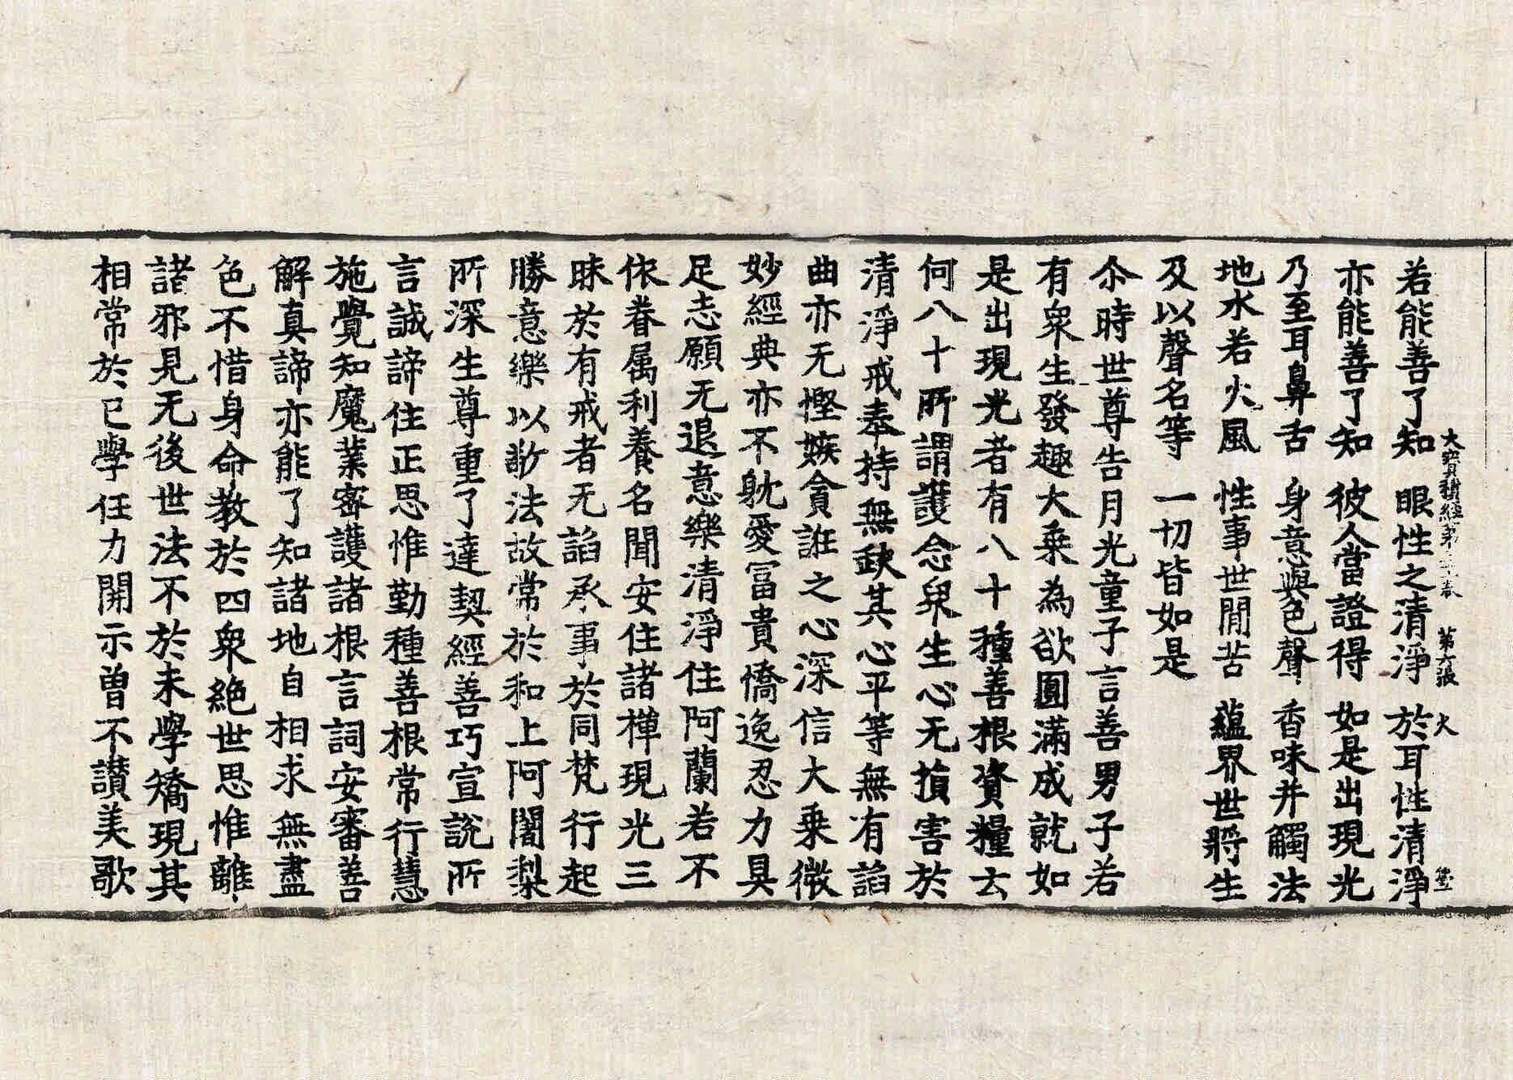 大寶積經第三十卷 第六張 火
若能善了知 眼性之清淨 於耳性清淨
亦能善了知 彼人當證得 如是出現光
乃至耳鼻舌 身意與色聲 香味并觸法
地水若火風 性事世間苦 蘊界世將生
及以聲名等 一切皆如是
尒時世尊告月光童子言善男子若
有衆生發趣大乘為欲圓滿成就如
是出現光者有八十種善根資糧云
何八十所謂護念衆生心无損害於
清淨戒奉持無缺其心平等無有諂
曲亦无慳嫉貪誑之心深信大乘微
妙經典亦不躭愛冨貴憍逸忍力具
足志願无退意樂清淨住阿蘭若不
依眷属利養名聞安住諸禅現光三
昧於有戒者无諂承事於同梵行起
勝意樂以敬法故常於和上阿闍梨
所深生尊重了達契經善巧宣說所
言誠諦住正思惟勤種善根常行慧
施覺知魔業密護諸根言詞安審善
解真諦亦能了知諸地自相求無盡
色不惜身命教於四衆絶世思惟離
諸邪見无後世法不於未學矯現其
相常於已學任力開示曾不讃美歌